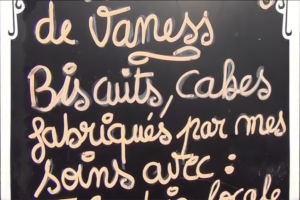 de Vaness
Biscuits, Cakes
fabriqués par mes
soins avec :
locale